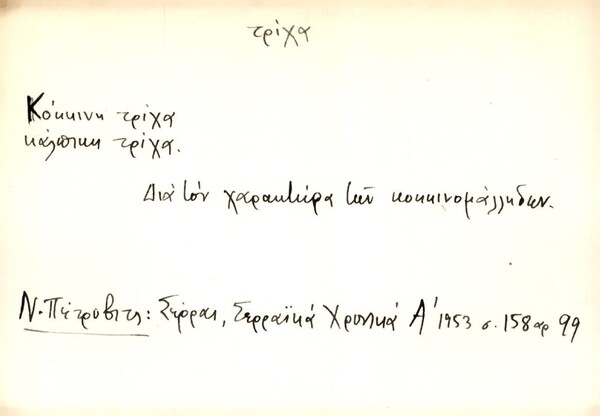 τρίχα
Κόκκινη τρίχα
κάλπικη τρίχα.
Διά τόν χαρακτήρα τῶν κοκκινομάλληδων.
Ν. Πέτροβιτς: Σέρραι, Σερραϊκά Χρονικά Α' 1953 σ. 158 αρ 99